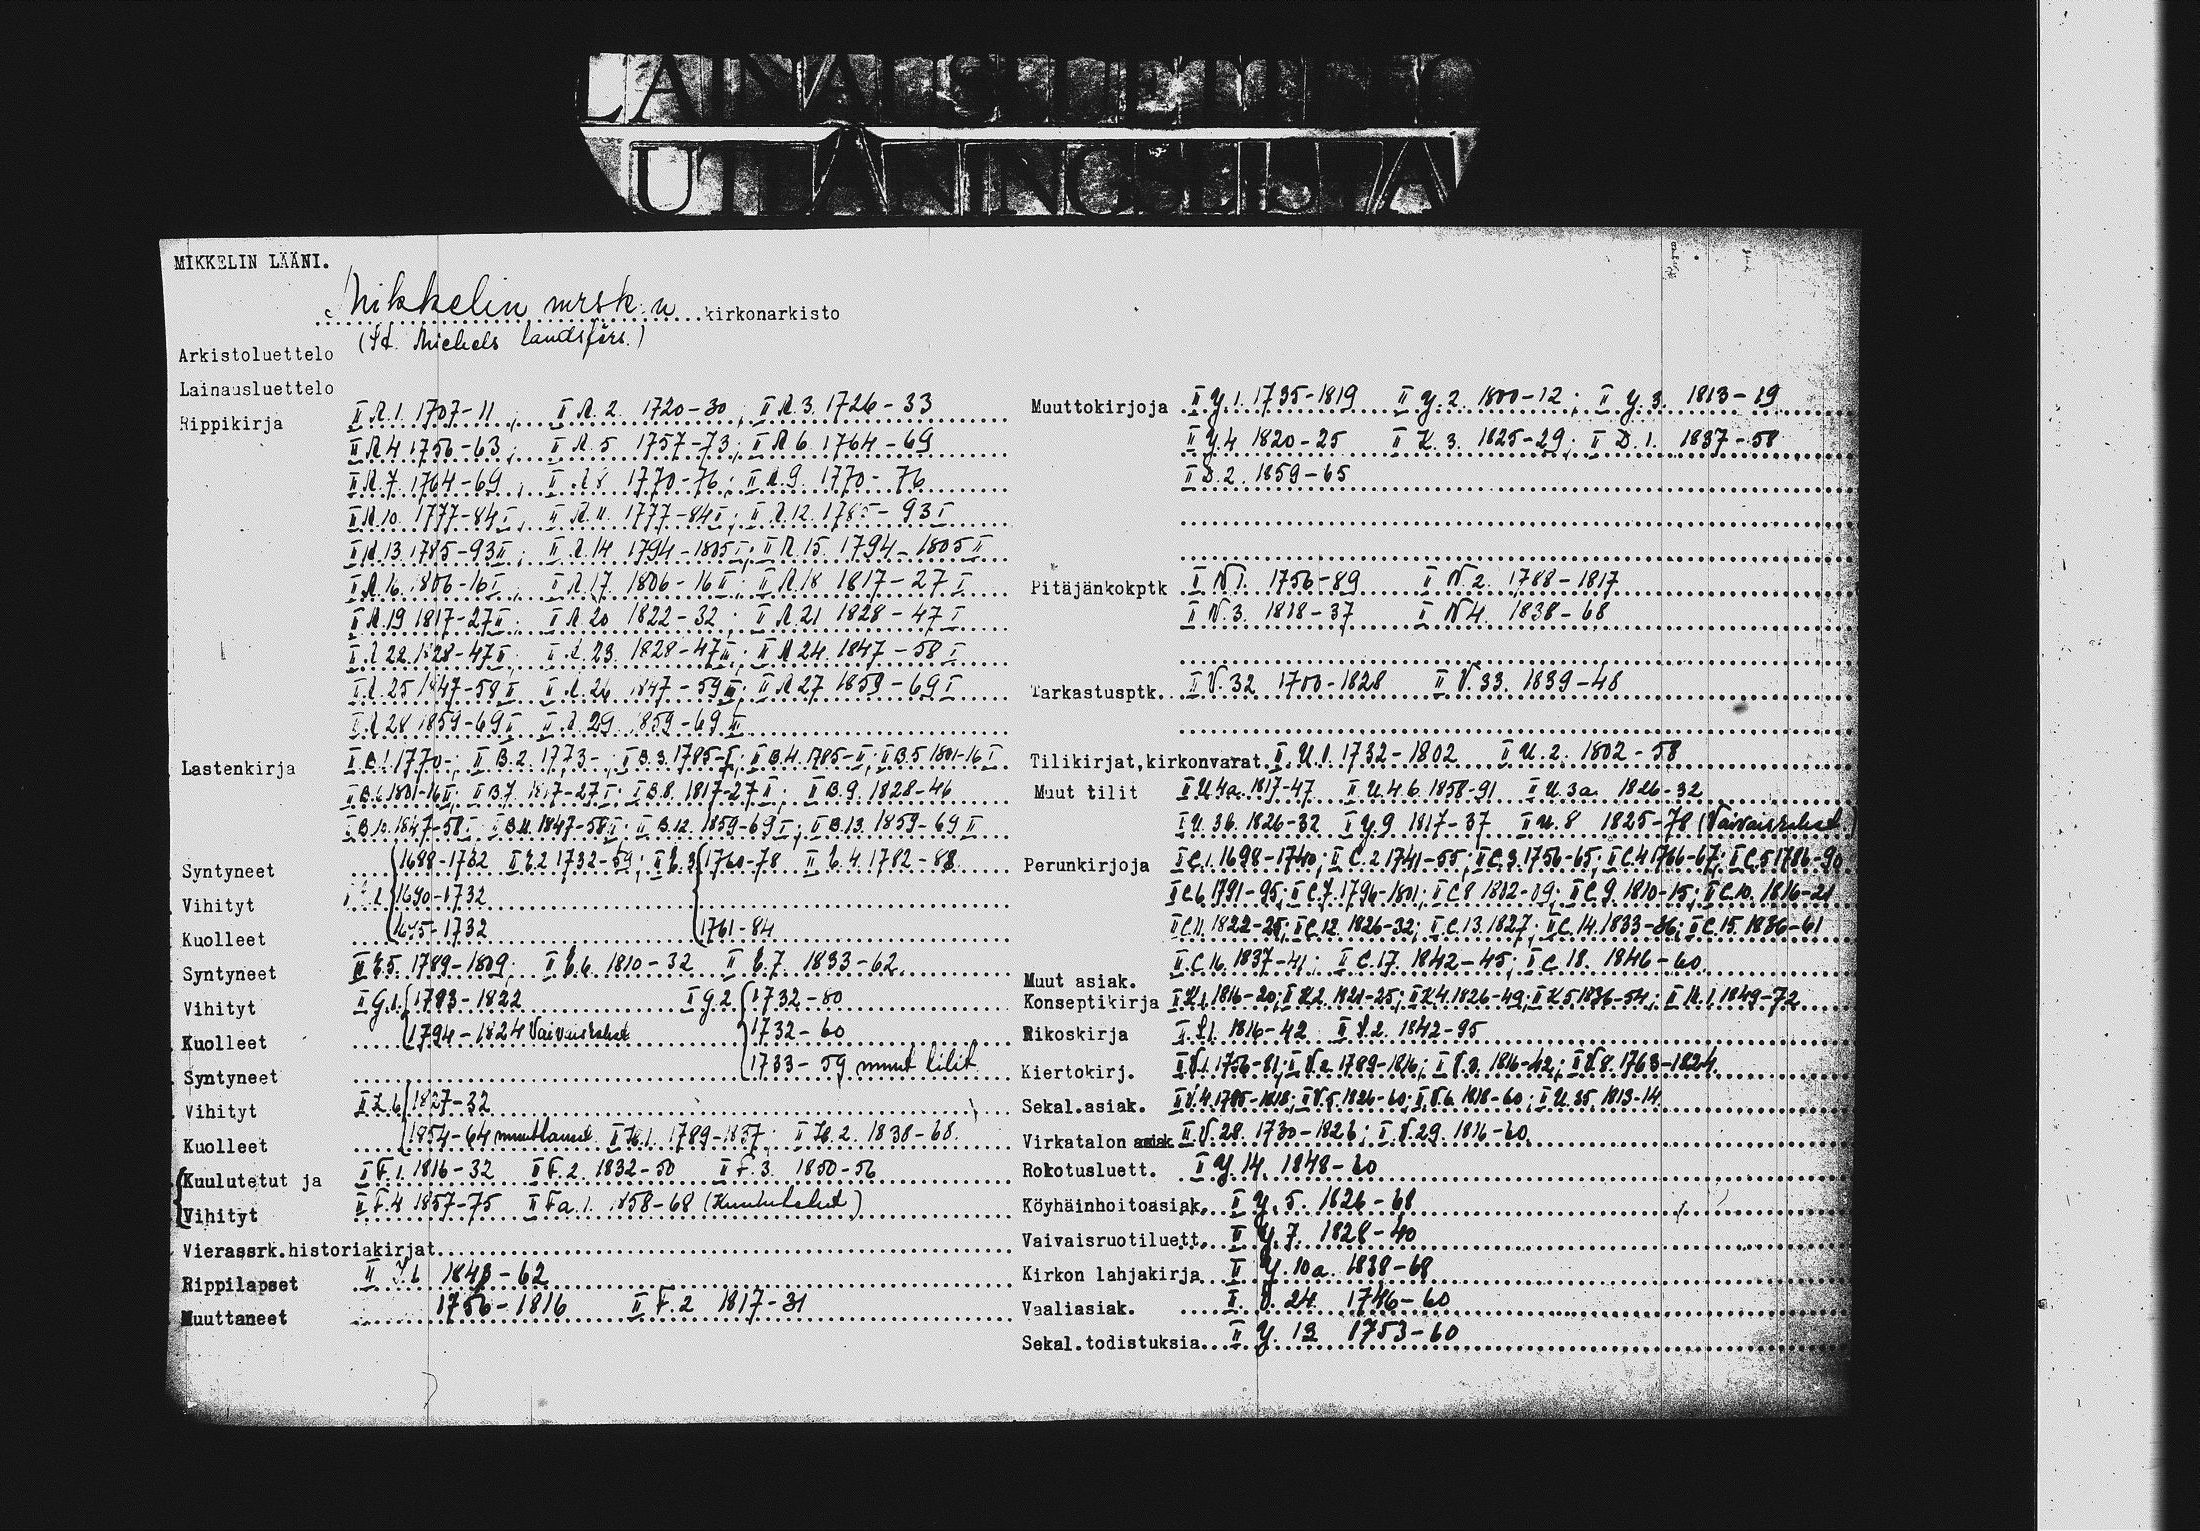 LAINAUSLUETTELO
UTDÅNINGSLISTA
MIKKELIN LÄÄNI.
Mikkelin mrsk:n kirkonarkisto
(St. Michels landsförs.)
Arkistoluettelo
Lainausluettelo
Rippikirja II A.1. 1707-11; II A.2. 1720-30; II A.3. 1726-33
II A.4 1756-63; II A.5 1757-73; II A.6. 1764-69
II A.7. 1764-69; II A.8 1770-76; II A.9. 1770-76
II A.10. 1777-84 I; II A.11. 1777-84 I; II A.12. 1785-93 I
II A.13. 1785-93 II; II A.14 1794-1805 I; II A.15. 1794-1805 II
II A.16. 1806-16 I; II A.17. 1806-16 II; II A.18 1817-27 I
II A.19 1817-27 II; II A.20 1822-32; II A.21 1828-47 I
II A.22. 1828-47 II; II A.23. 1828-47 III; II A.24. 1847-58 I
II A.25 1847-58 II II A.26 1847-59 III; II A.27 1859-69 I
II A.28 1859-69 II II A.29. 1859-69 III
Lastenkirja II B.1. 1770-; II B.2. 1773-; II B.3. 1785-I; II B.4. 1785-II; II B.5. 1801-16 I
II B.6. 1801-16 II; II B.7. 1817-27 I; II B.8. 1817-27 II; II B.9. 1828-46
II B.10. 1847-58 I; II B.11. 1847-58 II; II B.12. 1859-69 I; II B.13. 1859-69 II
Syntyneet 1688-1732 1732-59; 1760-78 1782-88
Vihityt 1690-1732
Kuolleet 1695-1732 1761-84
Syntyneet 1789-1809; 1810-32 1833-62
Vihityt II G.1. 1793-1822 II G.2. 1732-80
Kuolleet 1794-1824 Vaivaisrahat 1732-60
Syntyneet 1733-59 muut tilit
Vihityt 1827-32
Kuolleet 1854-64 II H.1. 1789-1837; II H.2. 1838-68.
Kuulutetut ja II F.1. 1816-32 II F.2. 1832-50 II F.3. 1850-56
Vihityt II F.4 1857-75 II Fa.1. 1858-68 (Kuulutetut)
Vierassrk.historiakirjat
Rippilapset 1843-62
Muuttaneet 1756-1816 II F.2 1817-31
Muuttokirjoja II Y.1. 1735-1819 II Y.2. 1800-12; II Y.3. 1813-19
II Y.4 1820-25 II K.3. 1825-29; II D.1. 1837-58
II D.2. 1859-65
Pitäjänkokptk II N 1. 1756-89 II N.2. 1788-1817
II N.3. 1818-37 II N 4. 1838-68
Tarkastusptk. II V.32 1700-1828 II V.33. 1839-48
Tilikirjat,kirkonvarat II U.1. 1732-1802 II U.2. 1802-58
Muut tilit II U.4a. 1817-47 II U.4.b. 1858-91 II U.3a 1826-32
II U.3b. 1826-32 II Y.9 1817-37 II U.8 1825-78 (Vaivaisrahat)
Perunkirjoja II C.1. 1698-1740; II C.2 1741-55; II C.3. 1756-65; II C.4 1766-67; II C.5 1786-90
II C.6. 1791-95; II C.7. 1796-1801; II C.8 1802-09; II C.9. 1810-15; II C.10. 1816-21
II C.11. 1822-25; II C.12. 1826-32; II C.13. 1827; II C.14. 1833-36; II C.15. 1836-61
II C.16. 1837-41; II C.17. 1842-45; II C.18. 1846-60.
Muut asiak.
Konseptikirja II K.1. 1816-20; II K.2. 1821-25; II K.4. 1826-49; II K.5 1836-54; 1849-72
Rikoskirja 1816-42 1842-95
Kiertokirj. II V.1. 1756-81; II V.2. 1789-1816; II V.3. 1816-42; II V.8. 1763-1824.
Sekal.asiak. II V.4. 1785-1818; II V.5. 1826-60; II V.6. 1818-60; II U.35. 1813-14
Virkatalon asiak II V.28. 1730-1826; II V.29. 1816-60
Rokotusluett. II Y.14. 1848-60
Köyhäinhoitoasiak. II Y.5. 1826-68
Vaivaisruotiluett. II Y.7. 1828-40
Kirkon lahjakirja II Y.10a. 1838-68
Vaaliasiak. II V.24. 1746-60
Sekal.todistuksia II Y.19 1753-60